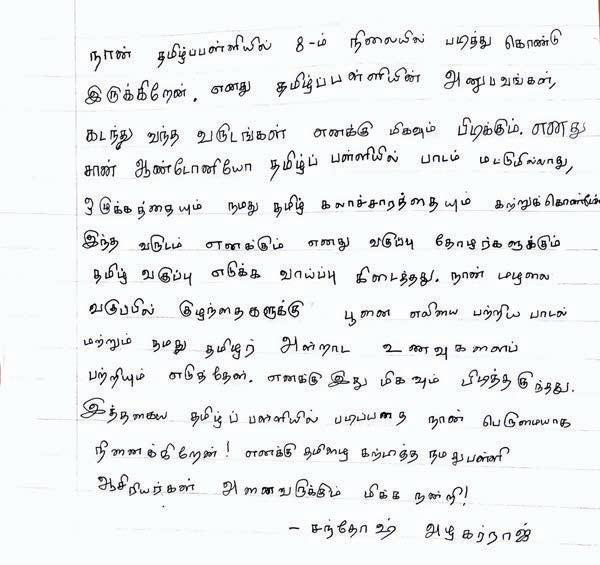 நான் தமிழ்ப்பள்ளியில் 8-ம் நிலையில் படித்து கொண்டு
இருக்கிறேன். எனது தமிழ்ப்பள்ளியின் அனுபவங்கள்,
கடந்து வந்த வருடங்கள் எனக்கு மிகவும் பிடிக்கும். எனது
சான் ஆண்டோனியோ தமிழ்ப் பள்ளியில் பாடம் மட்டுமில்லாது,
ஒழுக்கத்தையும் நமது தமிழ் கலாச்சாரத்தையும் கற்றுக்கொண்டேன்
இந்த வருடம் எனக்கும் எனது வகுப்பு தோழர்களுக்கும்
தமிழ் வகுப்பு எடுக்க வாய்ப்பு கிடைத்தது. நான் மழலை
வகுப்பில் குழந்தைகளுக்கு பூனை எலியை பற்றிய பாடல்
மற்றும் நமது தமிழர் அன்றாட உணவுகளைப்
பற்றியும் எடுத்தேன். எனக்கு இது மிகவும் பிடித்திருந்தது.
இத்தகைய தமிழ்ப் பள்ளியில் படிப்பதை நான் பெருமையாக
நினைக்கிறேன்! எனக்கு தமிழை கற்பித்த நமது பள்ளி
ஆசிரியர்கள் அனைவருக்கும் மிக்க நன்றி!
- சந்தோஷ் அழகர்ராஜ்